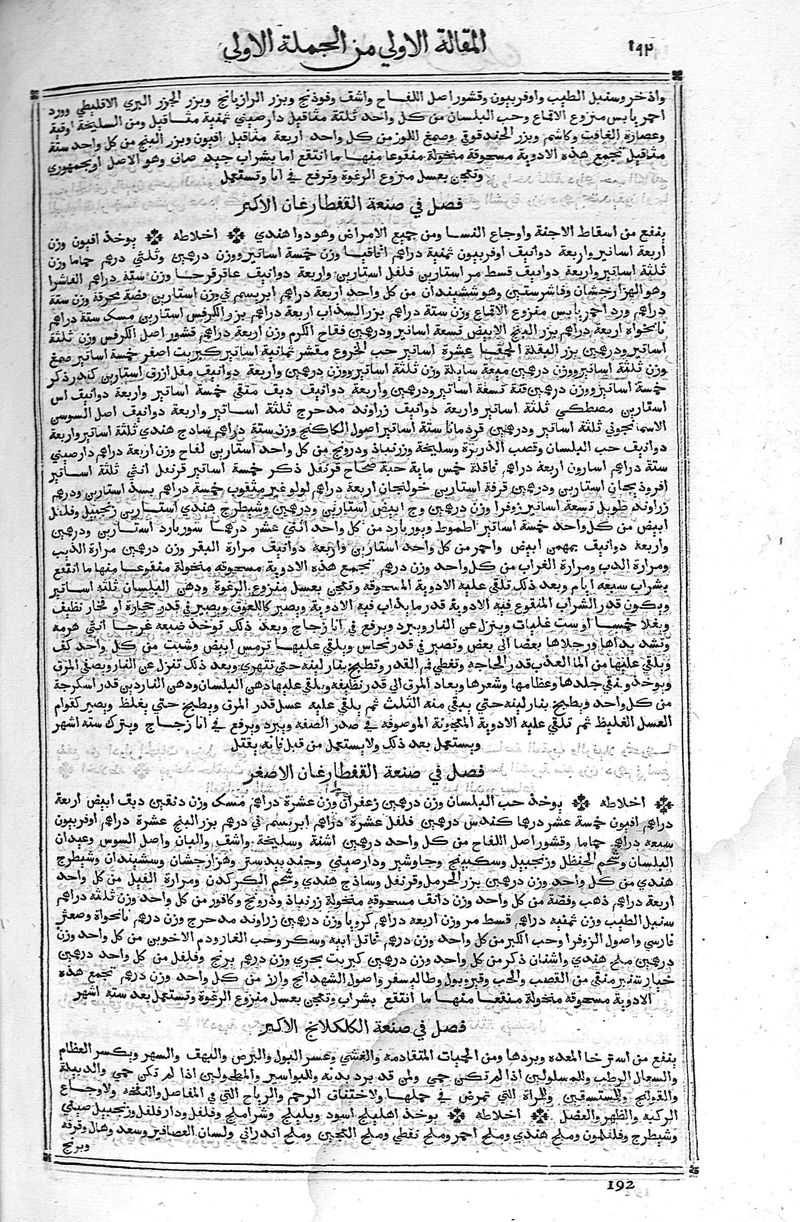 المقالة الاولي من الجملة الاولي
١٩٢
واذخر وسنبل الطيب واوفربيون وقشور اصل اللفاح واشف وفوذنج وبزر الرازيانج وبزر الجزر البري الاقليطي وورد
احمر يابس منزوع الاقماع وحب البلسان من كل واحد ثلثة مثاقيل دارصيني ثمنية مثاقيل ومن السليخة اوقية
وعصارة الغافت وكاشم وبزر الحندقوقي وصمغ اللوز من كل واحد اربعة مثاقيل افيون وبزر البنج من كل واحد ستة
مثاقيل تجمع هذه الادوية مسحوقة منخولة منقوعا منها ما انتقع اما بشراب جيد صاف وهو الاصل او بجمهوري
وتعجن بعسل منزوع الرغوة وترفع في انا وتستعمل
فصل في صنعة القفطارغان الاكبر
ينفع من اسقاط الاجنة واوجاع النسا ومن جميع الامراض وهو دوا هندي اخلاطه يوخذ افيون وزن
اربعة اساتير واربعة دوانيق اوفربيون ثمنية دراهم اقاقيا وزن خمسة اساتير ووزن درهمين وثلثي درهم حماما وزن
ثلثة اساتير واربعة دوانيق قسط مر استارين فلفل استارين واربعة دوانيق عاقرقرحا وزن ستة دراهم الفاشرا
وهو الهزارجشان وفاشرستين وهو ششبندان من كل واحد اربعة دراهم ابريسم في وزن استارين فضة محرقة وزن ستة
دراهم ورد احمر يابس منزوع الاقماع وزن ستة دراهم بزر السداب اربعة دراهم بزر الكرفس استارين مسك ستة دراهم
نانخواه اربعة دراهم بزر البنج الابيض تسعة اساتير ودرهمين فقاح الكرم وزن اربعة دراهم قشور اصل الكرفس وزن ثلثة
اساتير ودرهمين بزر البقلة الحمقا عشرة اساتير حب الخروع مقشر ثمانية اساتير كبريت اصفر خمسة اساتير صمغ
وزن ثلثة اساتير ووزن درهمين ميعة سايلة وزن ثلثة اساتير ووزن درهمين واربعة دوانيق مقل ازرق استارين كندر ذكر
خمسة اساتير ووزن درهمين قنة تسعة اساتير ودرهمين واربعة دوانيق دبق منقي خمسة اساتير واربعة دوانيق اس
استارين مصطكي ثلثة اساتير واربعة دوانيق زراوند مدحرج ثلثة اساتير واربعة دوانيق اصل السوسن
الاسمانجوني ثلثة اساتير ودرهمين قردمانا ستة اساتير اصول الكاكنج وزن ستة دراهم سادج هندي ثلثة اساتير واربعة
دوانيق حب البلسان وقصب الذريرة وسليخة وزرنباذ ودرونج من كل واحد استارين لفاح وزن اربعة دراهم دارصيني
ستة دراهم اسارون اربعة دراهم ناقلة خمس ماية حبة صحاح قرنفل ذكر خمسة اساتير قرنفل انثي ثلثة اساتير
افروذيجان استارين ودرهمين قرفة استارين خولنجان اربعة دراهم لولو غير مثقوب خمسة دراهم بسد استارين ودرهم
زراوند طويل تسعة اساتير زوفرا وزن درهمين وج ابيض استارين ودرهمين وشيطرج هندي استارين زنجبيل وفلفل
ابيض من كل واحد خمسة اساتير اطموط وبوربارد من كل واحد اثني عشر درهما سوربارد استارين ودرهمين
واربعة دوانيق بهمن ابيض واحمر من كل واحد استارين واربعة دوانيق مرارة البقر وزن درهمين مرارة الذيب
ومرارة الدب ومرارة الغراب من كل واحد وزن درهم تجمع هذه الادوية مسحوقة منخولة منقوعا منها ما انتقع
بشراب سبعه ايام وبعد ذلك تلقي عليه الادوية المسحوقه وتعجن بعسل منزوع الرغوة ودهن البلسان ثلثه اساتير
ويكون قدر الشراب المنقوع فيه الادوية قدر ما يداب فيه الادوية ويصير كاللعوق ويصير في قدر حجارة او فخار نظيف
ويغلا خمسا او ست غليات وينزل عن النار ويبرد ويرفع في انا زجاج وبعد ذلك توخذ ضبعه عرجا انثي هرمه
وتشد يداها ورجلاها بعضا الي بعض وتصير في قدر نحاس ويلقي عليها ترمس ابيض وشبت من كل واحد كف
ويلقي عليها من الما العذب قدر الحاجه وتغطي فم القدر وتطبخ بنار لينه حتي تتهري وبعد ذلك تنزل عن النار ويصفي المرق
ويوخذ وينقي جلدها وعظامها وشعرها ويعاد المرق الي قدر نظيفه ويلقي عليها دهن البلسان ودهن الناردين قدر اسكرجة
من كل واحد ويطبخ بنار لينه حتي يبقي منه الثلث ثم يلقي عليه عسل قدر المرق ويطبخ حتي يغلظ ويصير كقوام
العسل الغليظ ثم تلقي عليه الادوية المعجونة الموصوفه في صدر الصفه ويبرد ويرفع في انا زجاج ويترك سته اشهر
ويستعمل بعد ذلك ولا يستعمل من قبل فانه يقتل
فصل في صنعة القفطارغان الاصغر
اخلاطه يوخذ حب البلسان وزن درهمين زعفران وزن عشرة دراهم مسك وزن دنقين دبق ابيض اربعة
دراهم افيون خمسة عشر درهما كندس درهمين فلفل عشرة دراهم ابريسم في درهم بزر البنج عشرة دراهم اوفربيون
سبعه دراهم حماما وقشور اصل اللفاح من كل واحد درهمين اشنة وسليخة واشف والبان واصل السوس وعيدان
البلسان وشحم الحنظل وزنجبيل وسكبينج وجاوشير ودارصيني وجندبيدستر وهزارجشان وسشبندان وشيطرج
هندي من كل واحد وزن درهمين بزر الحرمل وقرنفل وساذج هندي وشحم الكركدن ومرارة الفيل من كل واحد
اربعة دراهم ذهب وفضة من كل واحد وزن دانف مسحوقة منخولة زرنباذ وذرونج وكافور من كل واحد وزن ثلثه دراهم
سنبل الطيب وزن ثمنيه دراهم قسط مر وزن اربعه دراهم كرويا وزن درهمين زراوند مدحرج وزن درهم نانخواة وصعتر
فارسي واصول الزوفرا وحب الكبر من كل واحد وزن درهم ثمانل ابيه وسكر وحب الغار ودم الاخوين من كل واحد وزن
درهمين ملح هندي واشنان ذكر من كل واحد وزن درهمين كبريت بحري وزن درهم برنج وفلفل من كل واحد درهمين
خيارشنبر منقي من القصب والحب وقيروبول وطاليسفر واصول الشهدانج وارز من كل واحد وزن درهم تجمع هذه
الادوية مسحوقة منخولة منقعا منها ما انتقع بشراب وتعجن بعسل منزوع الرغوة وتستعمل بعد سته اشهر
فصل في صنعة الكلكلانج الاكبر
ينفع من استرخا المعده وبردها ومن الحميات المتقادمه والغشي وعسر البول والبرص والبهق والسهر وبكسر العظام
والسعال الرطب وللمسلولين اذا لم تكن حمي ولمن قد برد بدنه وللبواسير والمطحولين اذا لم تكن حمي والدبيلة
والقولنج وللمستسقين وللمراة التي تمرض في حملها ولاختناق الرحم والرياح التي في المفاصل والنفخه ولاوجاع
الركبه والظهر والعضل اخلاطه يوخذ اهليلج اسود وبليلج وشيراملج وفلفل ودارفلفل وزنجبيل صيني
وشيطرج وفلفلمون وملح هندي وملح احمر وملح نفطي وملح العجين وملح اندراني ولسان العصافير وسعد وهال وقرفه
وبرنج
192